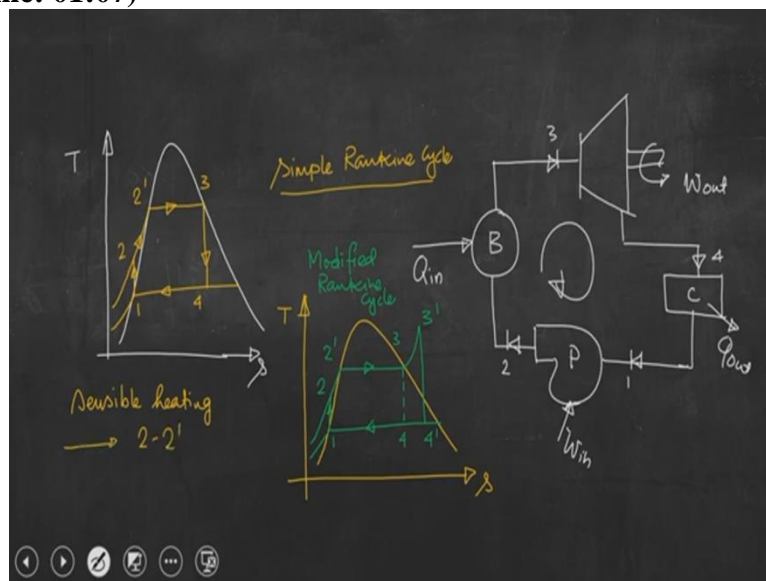 T
2'
3
2
1
4
s
Simple Rankine Cycle
Sensible heating
2-2'
Modified
Rankine
Cycle
T
2'
3
3'
2
1
4
4'
s
3
Wout
B
Qin
4
C
Qout
2
P
1
Win